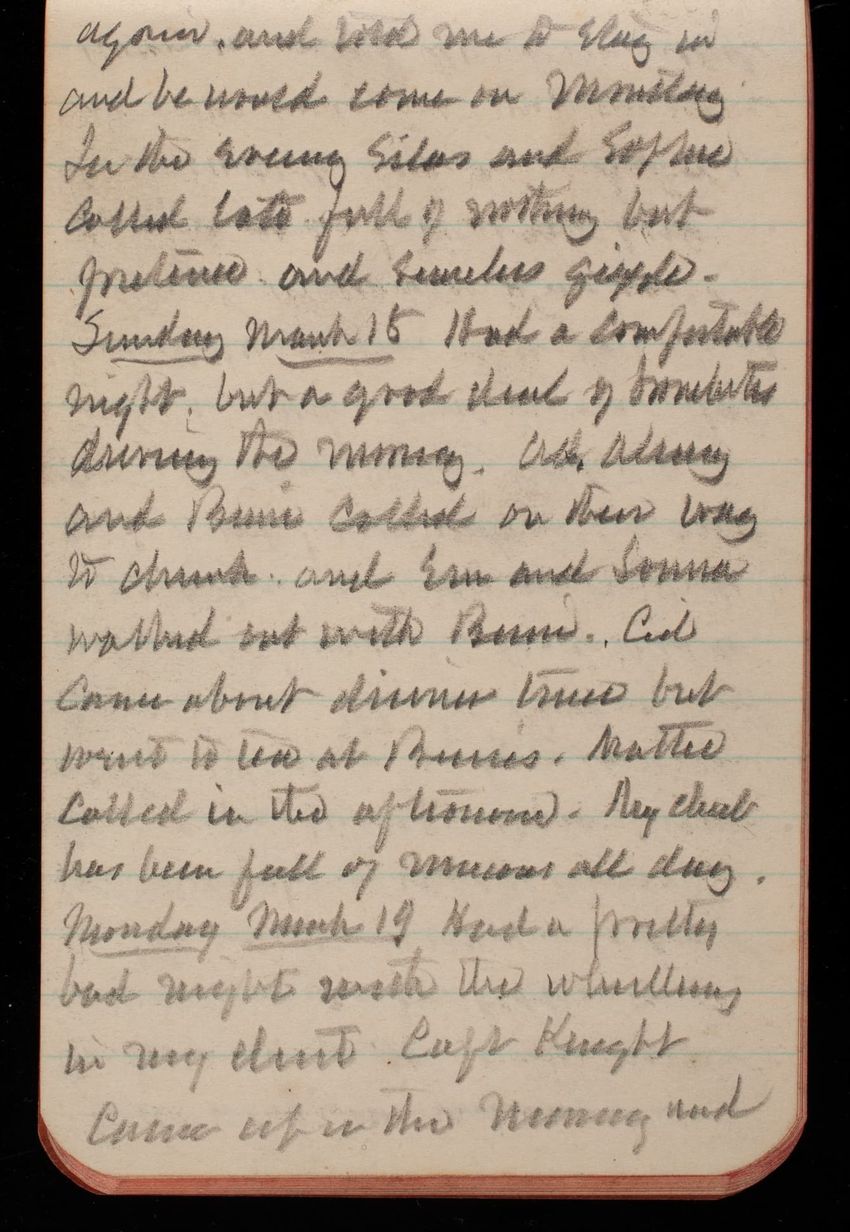 again, and told me to stay in
and he would come on Monday
In the evening Silas and Sophie
Called late full of nothing but
pretense and senseless
Sunday March 18 Had a comfortable
night, but a good deal of
during the morning. Ad. Almy
and Bunie Called on their way
to church. and Em and Donna
walked out with Bunie. Cid
Came about dinner time but
went to tea at Bunies. Mattie
Called in the afternoon. My chest
has been full of mucous all day.
Monday March 19 Had a pretty
bad night with the whistling
in my chest Capt Knight
Came up in the morning and